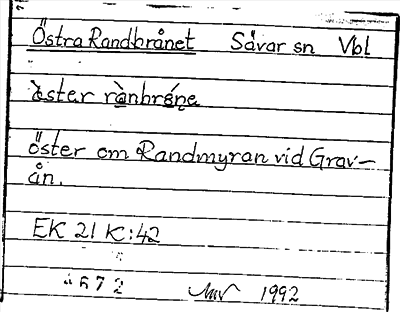 Östra Randbrånet Sävar sn Vbl
öster om Randmyran vid Grav-
ån.
EK 21 K:42
672
1992